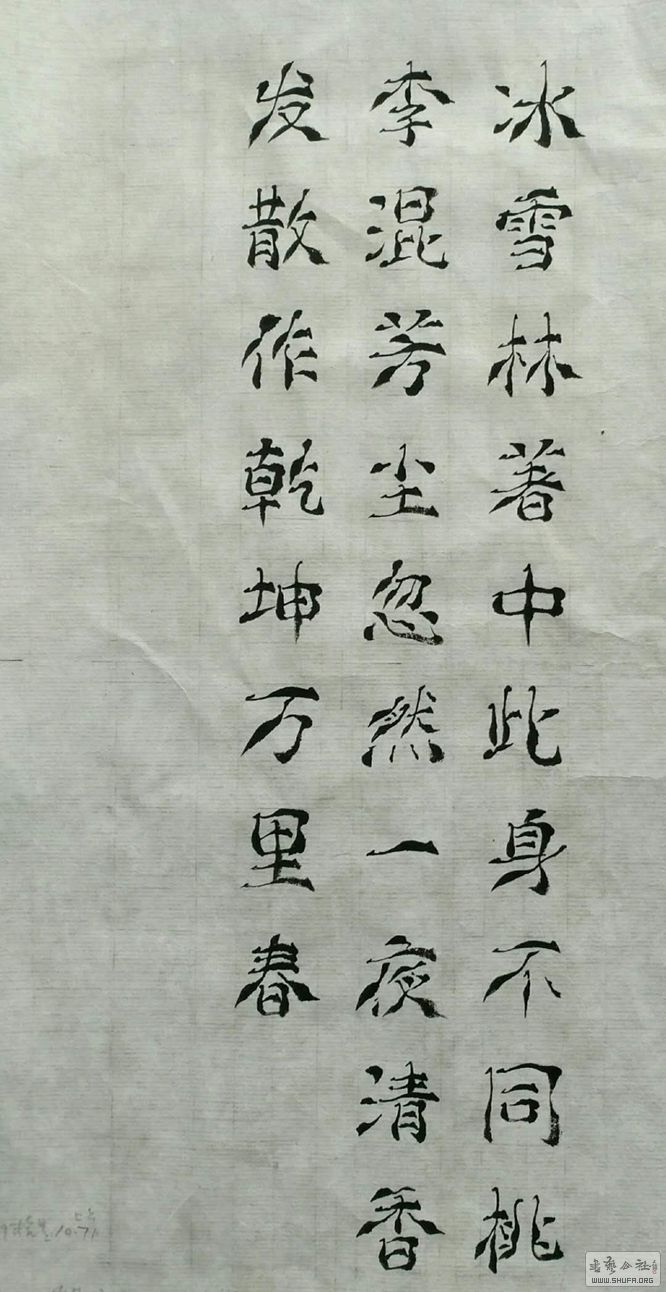 冰雪林著中此身不同桃
李混芳尘忽然一夜清香
发散作乾坤万里春
书艺公社
WWW.SHUFA.ORG